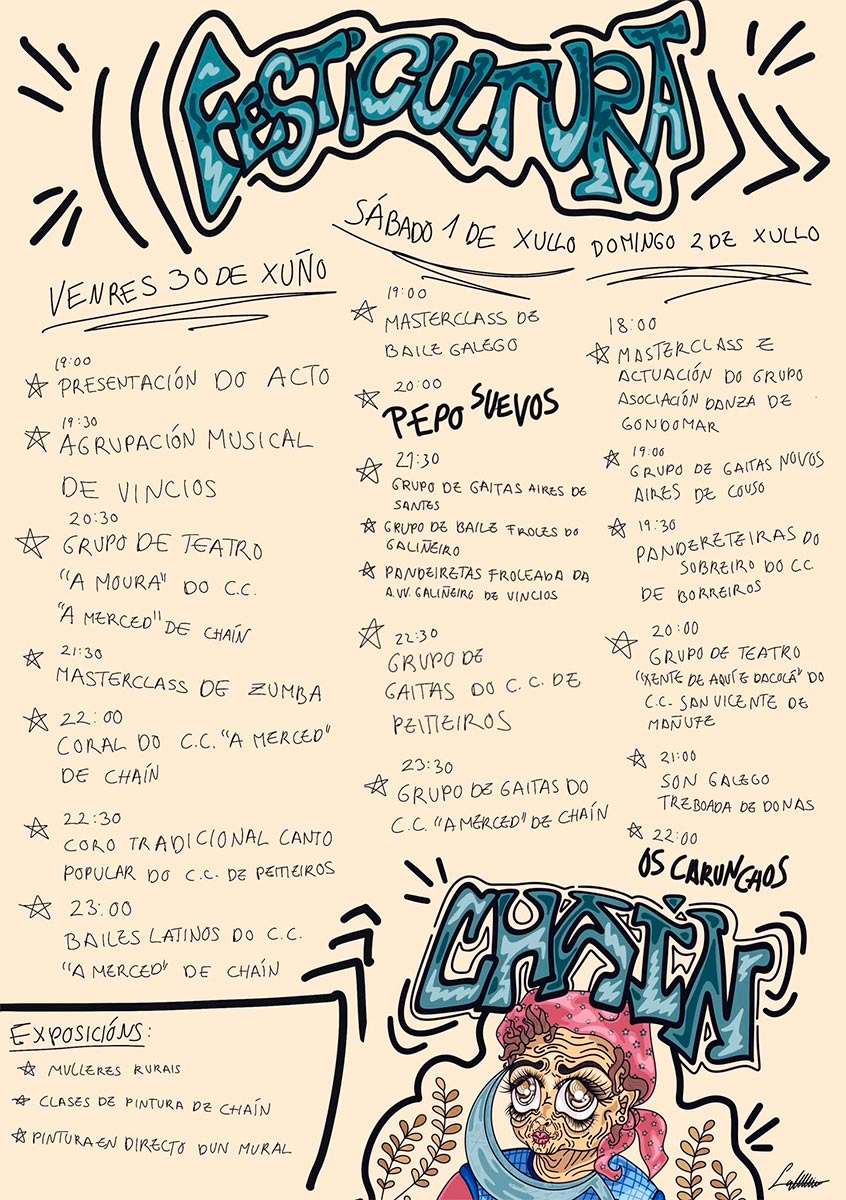 FESTICULTURA
VENRES 30 DE XUÑO
19:00
PRESENTACIÓN DO ACTO
19:30
AGRUPACIÓN MUSICAL
DE VINCIOS
20:30
GRUPO DE TEATRO
"A MOURA" DO C.C.
"A MERCED" DE CHAÍN
21:30
MASTERCLASS DE ZUMBA
22:00
CORAL DO C.C. "A MERCED"
DE CHAÍN
22:30
CORO TRADICIONAL CANTO
POPULAR DO C.C. DE PEITIEIROS
23:00
BAILES LATINOS DO C.C.
"A MERCED" DE CHAÍN
SÁBADO 1 DE XULLO
19:00
MASTERCLASS DE
BAILE GALEGO
20:00
PEPO SUEVOS
21:30
GRUPO DE GAITAS AIRES DE
SANTES
GRUPO DE BAILE FROLES DO
GALIÑEIRO
PANDEIRETAS FROLEADA DA
A.VV. GALIÑEIRO DE VINCIOS
22:30
GRUPO DE
GAITAS DO C.C. DE
PEITIEIROS
23:30
GRUPO DE GAITAS DO
C.C. "A MERCED" DE CHAÍN
DOMINGO 2 DE XULLO
18:00
MASTERCLASS E
ACTUACIÓN DO GRUPO
ASOCIACIÓN DANZA DE
GONDOMAR
19:00
GRUPO DE GAITAS NOVOS
AIRES DE COUSO
19:30
PANDERETEIRAS DO
SOBREIRO DO CC
DE BORREIROS
20:00
GRUPO DE TEATRO
"XENTE DE AQUÍ E DACOLÁ" DO
C.C. SAN VICENTE DE
MAÑUFE
21:00
SON GALEGO
TREBOADA DE DONAS
22:00
OS CARUNCHOS
CHAIN
EXPOSICIÓNS:
MULLERES RURAIS
CLASES DE PINTURA DE CHAÍN
PINTURA EN DIRECTO DUN MURAL